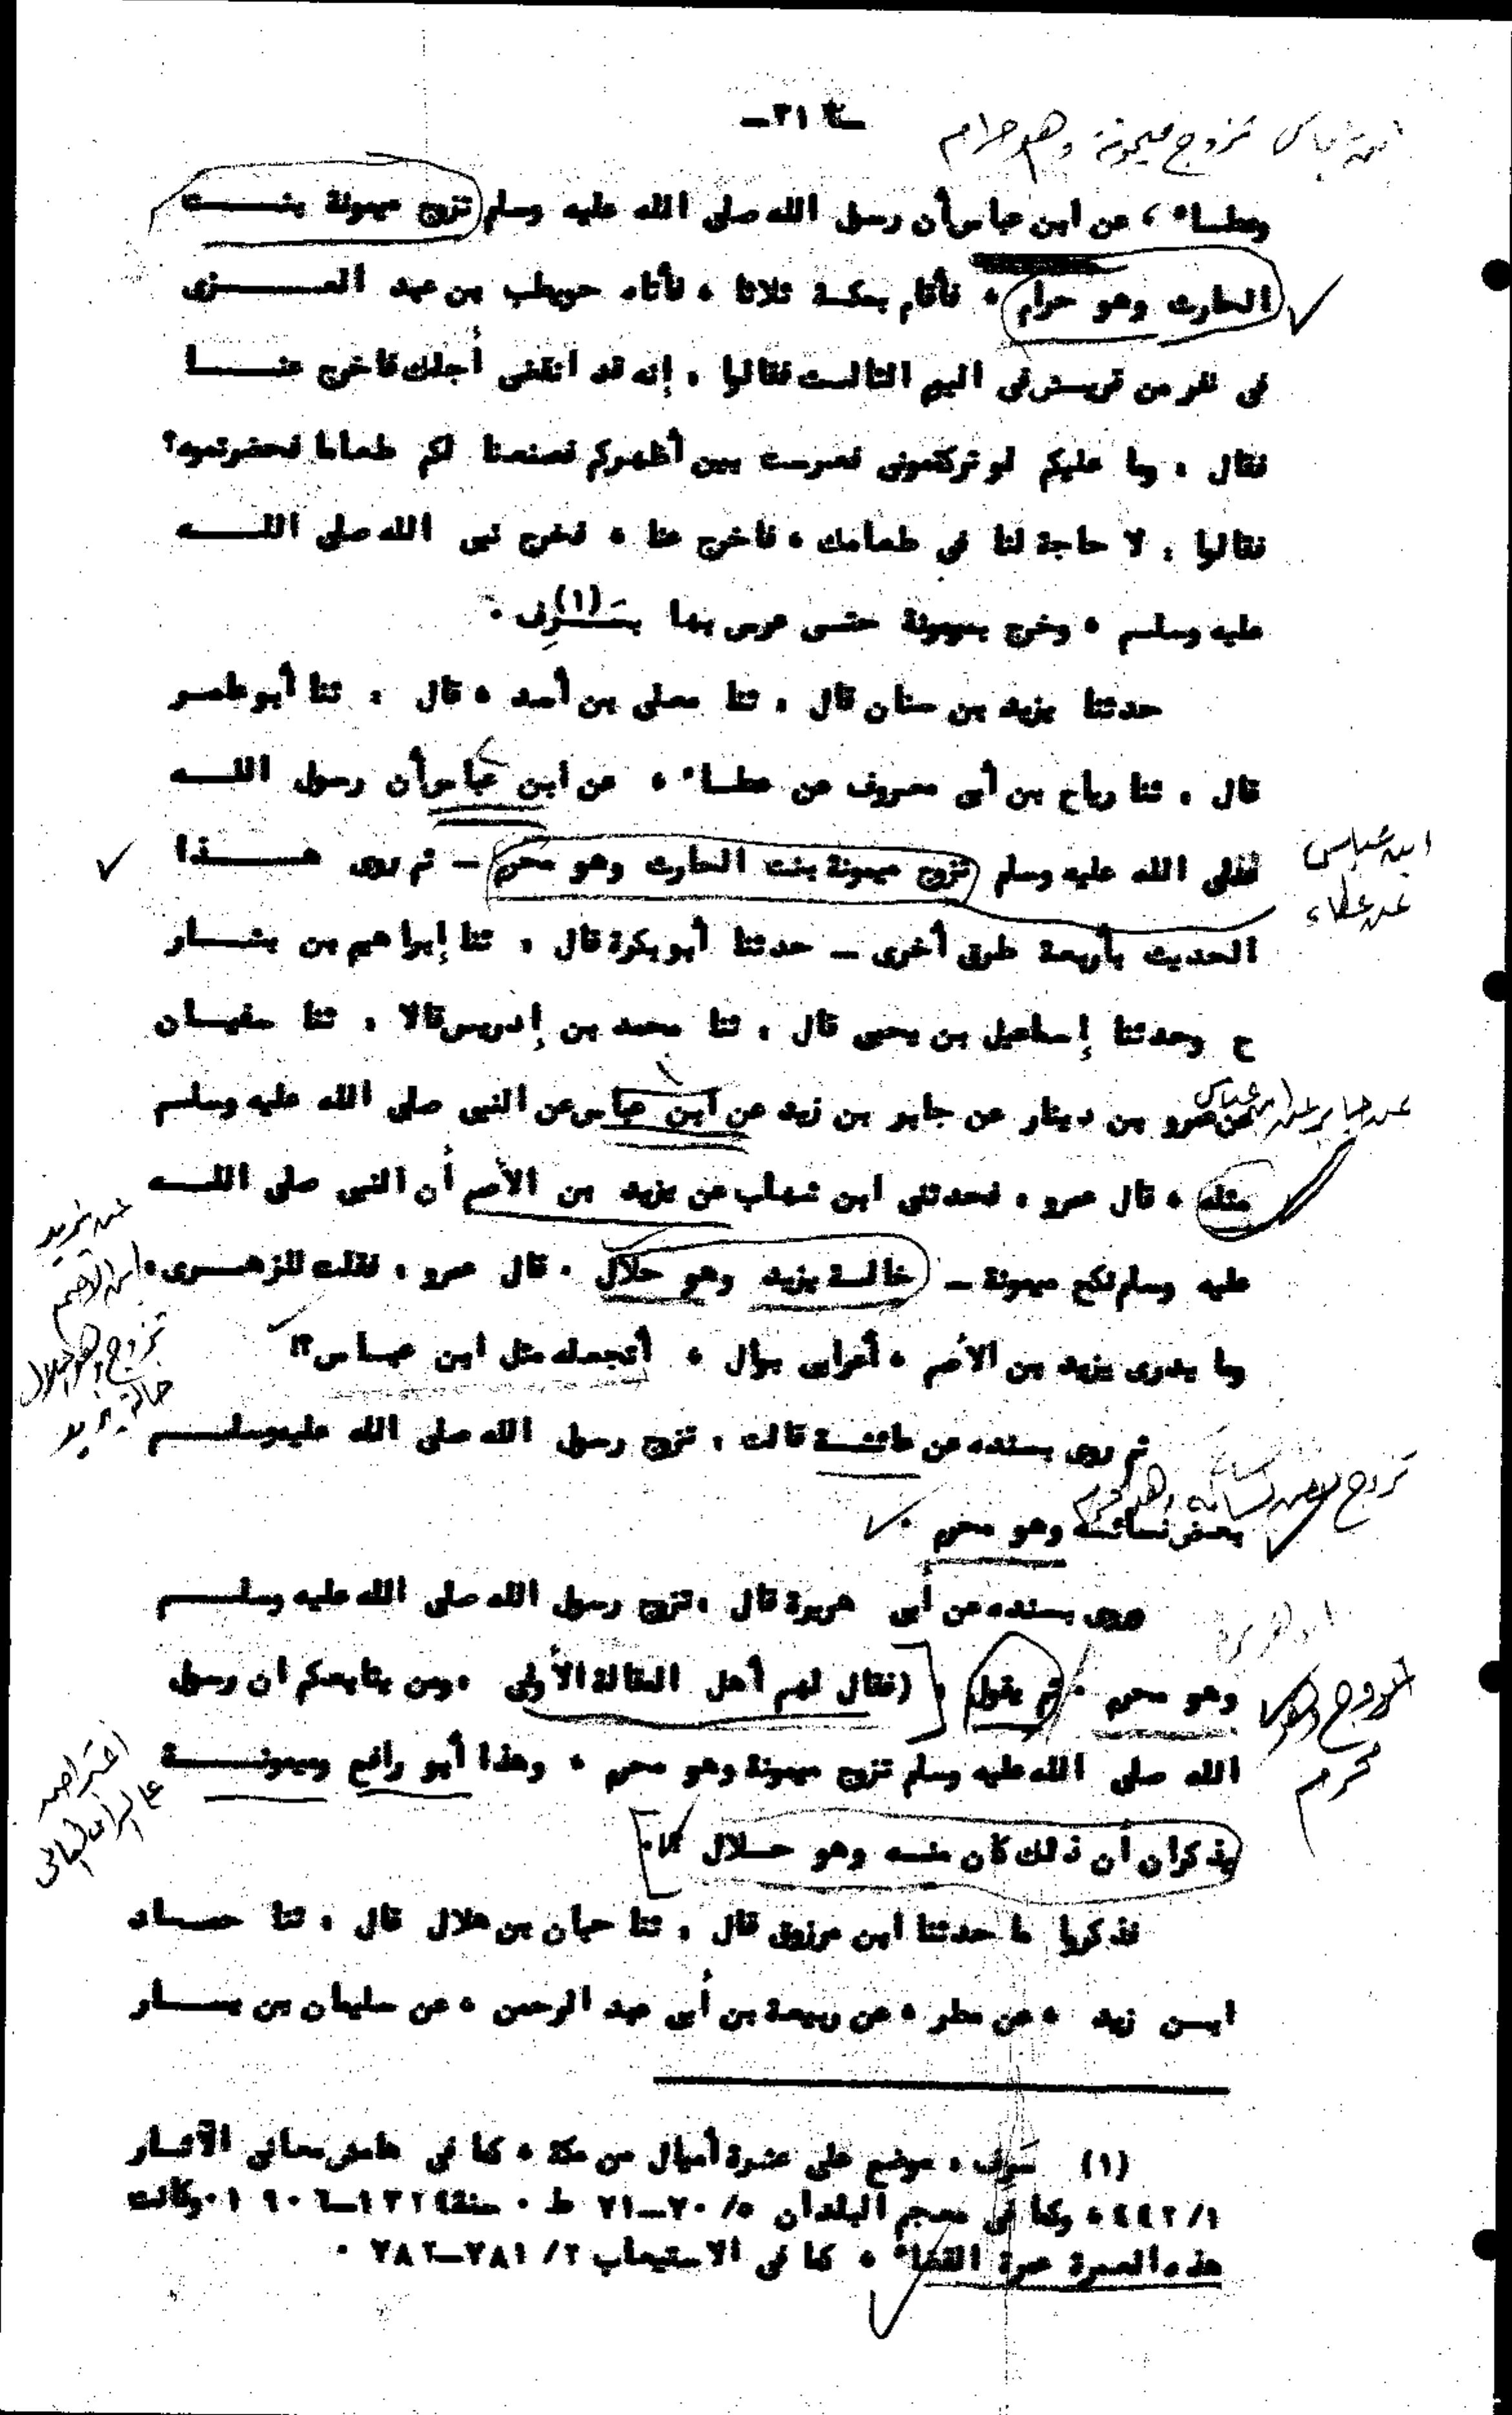 ابن عباس تزوج ميمونة وهو حرام
وعطاء ، عن ابن عباس أن رسول الله صلى الله عليه وسلم تزوج ميمونة بنت
الحارث وهو حرام ، فأقام بمكة ثلاثا ، فأتاه حويطب بن عبد العزى
فى نفر من قريش فى اليوم الثالث فقالوا : إنه قد انقضى أجلك فاخرج عنا
فقال : وما عليكم لو تركتمونى فعرست بين أظهركم فصنعنا لكم طعاما فحضرتموه؟
فقالوا : لا حاجة لنا فى طعامك ، فاخرج عنا ، فخرج نبى الله صلى الله
عليه وسلم ، وخرج بميمونة حتى عرس بها بسَرِف (١) .
حدثنا يزيد بن سنان قال : ثنا معلى بن أسد ، قال : ثنا أبو عامر
قال : ثنا رباح بن أبى معروف عن عطاء ، عن ابن عباس أن رسول الله
صلى الله عليه وسلم تزوج ميمونة بنت الحارث وهو محرم – ثم روى هذا
ابن عباس
عن عطاء
الحديث بأربعة طرق أخرى – حدثنا أبو بكرة قال : ثنا إبراهيم بن بشار
ح وحدثنا إسماعيل بن يحيى قال : ثنا محمد بن إدريس قالا : ثنا سفيان
عن عمرو بن دينار عن جابر بن زيد عن ابن عباس عن النبى صلى الله عليه وسلم
عن جابر عن ابن عباس
مثله ، قال عمرو : فحدثنى ابن شهاب عن يزيد بن الأصم أن النبى صلى الله
عليه وسلم نكح ميمونة – خالة يزيد وهو حلال . قال عمرو : فقلت للزهرى :
عن يزيد
ابن الأصم
تزوج وهو حلال
خالة يزيد
وما يدرى يزيد بن الأصم ، أعرابى بوال ، أتجعله مثل ابن عباس ؟!
ثم روى بسنده عن عائشة قالت : تزوج رسول الله صلى الله عليه وسلم
تزوج بعض نسائه وهو محرم
بعض نسائه وهو محرم .
وروى بسنده عن أبى هريرة قال : تزوج رسول الله صلى الله عليه وسلم
وهو محرم . ثم يقول : (فقال لهم أهل المقالة الأولى : ومن يتابعكم أن رسول
محرم
الله صلى الله عليه وسلم تزوج ميمونة وهو محرم ، وهذا أبو رافع وميمونة
يذكران أن ذلك كان منه وهو حلال ؟!.
فذكروا ما حدثنا ابن مرزوق قال : ثنا حبان بن هلال قال : ثنا حماد
ابن زيد ، عن مطر ، عن ربيعة بن أبى عبد الرحمن ، عن سليمان بن يسار
(١) سَرِف : موضع على عشرة أميال من مكة ، كما فى هامش معانى الآثار
١/ ٤٤٢ ، وكما فى معجم البلدان ٥/ ٧٠–٧١ ط . سنة ١٣٢٤–١٩٠٦ . وكانت
هذه العمرة عمرة القضاء ، كما فى الاستيعاب ٢/ ٧٨١–٧٨٢ .